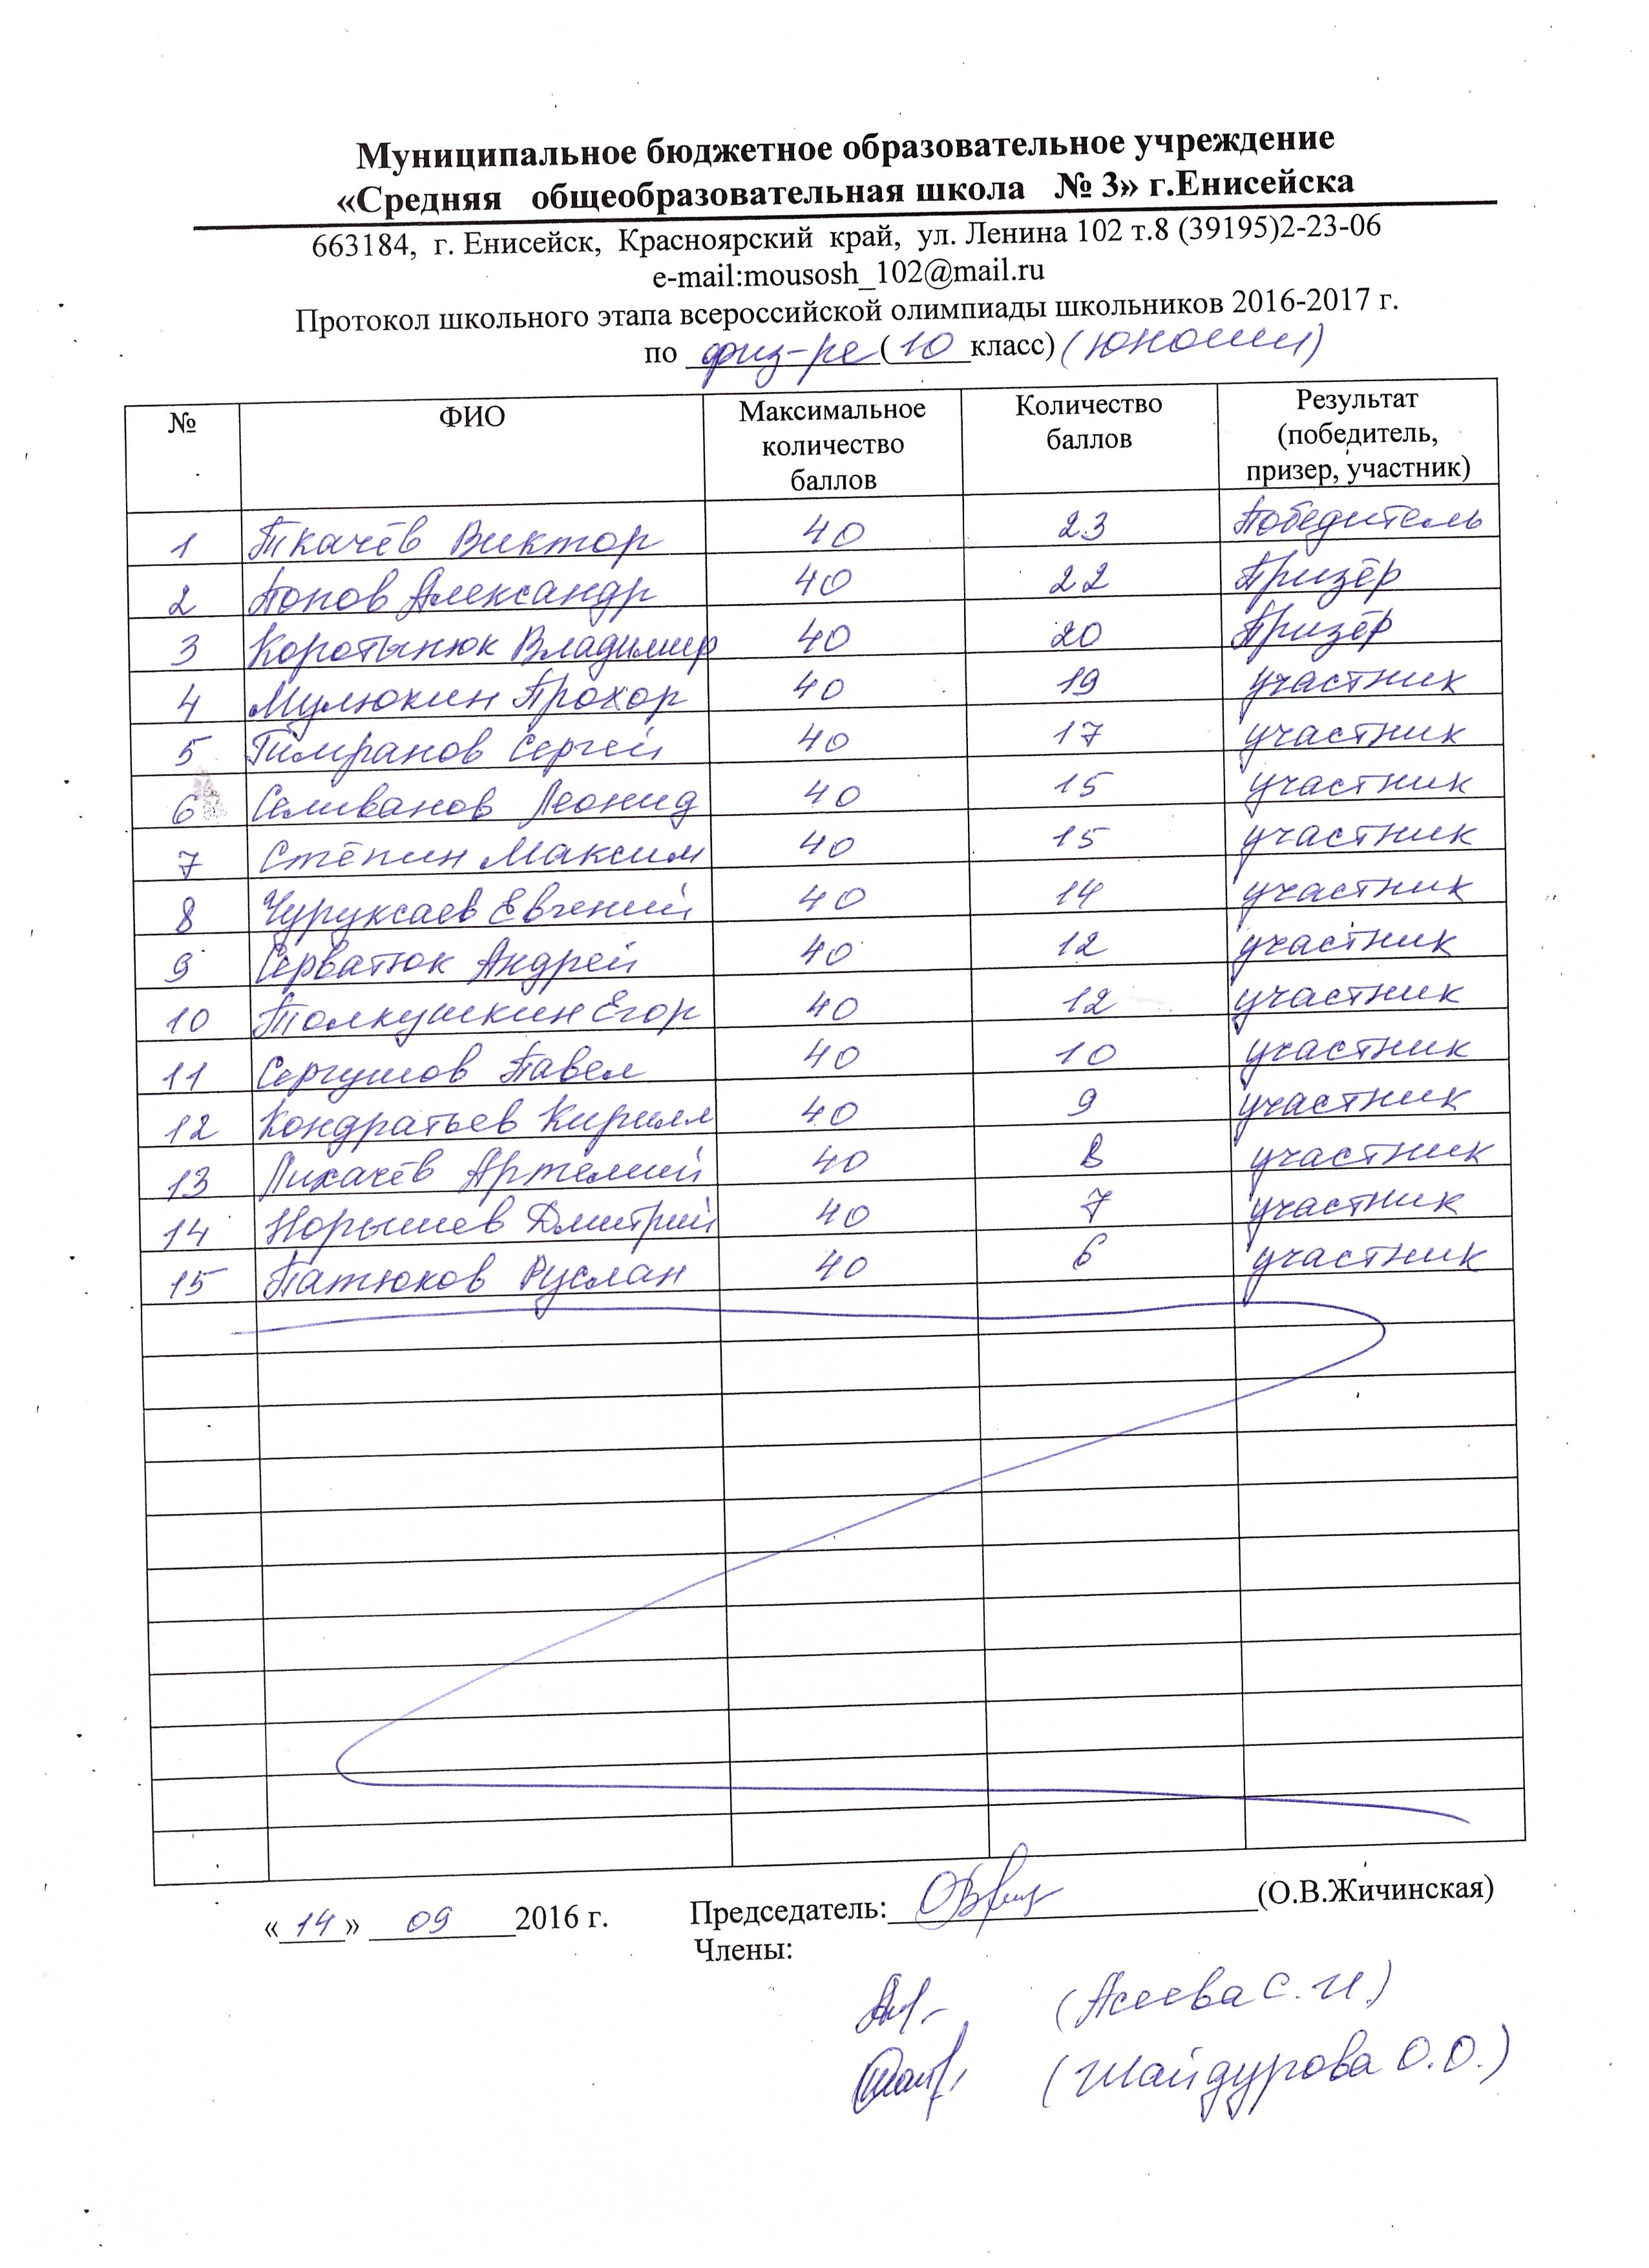 Муниципальное бюджетное образовательное учреждение
«Средняя общеобразовательная школа № 3» г.Енисейска
663184, г. Енисейск, Красноярский край, ул. Ленина 102 т.8 (39195)2-23-06
e-mail:mousosh_102@mail.ru
Протокол школьного этапа всероссийской олимпиады школьников 2016-2017 г.
по физ-ре (10 класс) (юноши)
№ ФИО Максимальное количество баллов Количество баллов Результат (победитель, призер, участник)
1 Ткачёв Виктор 40 23 Победитель
2 Попов Александр 40 22 Призёр
3 Коротынюк Владимир 40 20 Призёр
4 Мулюкин Прохор 40 19 участник
5 Тимранов Сергей 40 17 участник
6 Селиванов Леонид 40 15 участник
7 Стёпин Максим 40 15 участник
8 Чуруксаев Евгений 40 14 участник
9 Серватюк Андрей 40 12 участник
10 Толкушкин Егор 40 12 участник
11 Сергушов Павел 40 10 участник
12 Кондратьев Кирилл 40 9 участник
13 Лихачёв Артемий 40 8 участник
14 Норышев Дмитрий 40 7 участник
15 Патюков Руслан 40 6 участник
«14» 09 2016 г. Председатель: (О.В.Жичинская)
Члены:
(Асеева С.И.)
(Шайдурова О.О.)